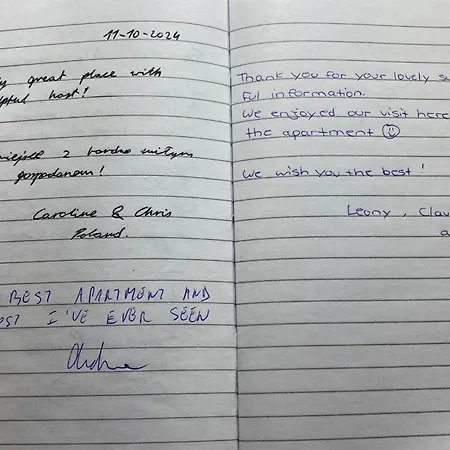 11-10-2024
great place with
host!
2 bardzo miłym
gospodarzem!
Caroline & Chris
Poland.
BEST APARTMENT AND
I'VE EVER SEEN
Thank you for your lovely
ful information.
We enjoyed our visit here
the apartment ☺
We wish you the best!
Leony,